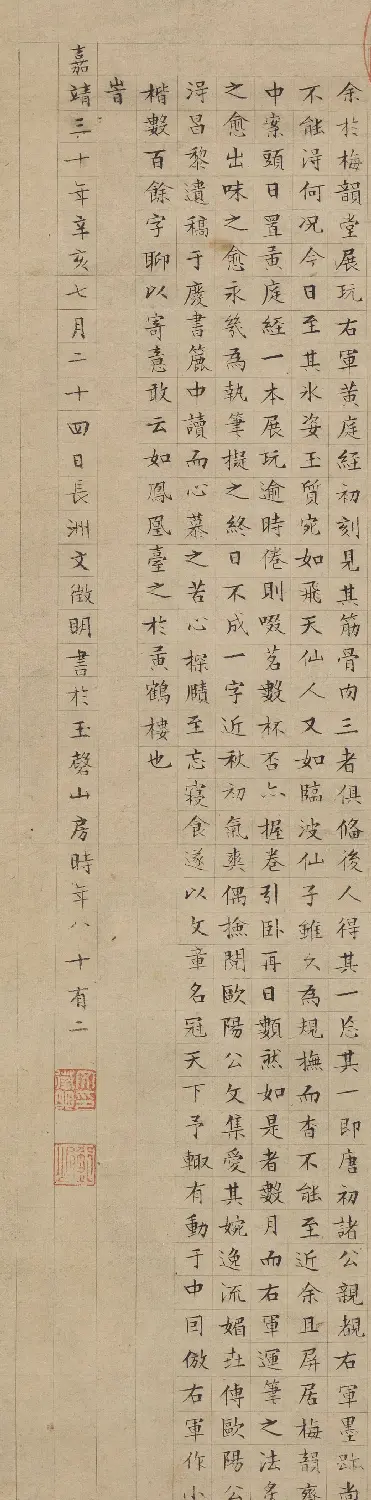 余於梅韻堂展玩右軍黃庭經初刻見其筋骨肉三者俱備後人得其一忘其一即唐初諸公親覩右軍墨跡尚
不能淂何況今日至其氷姿玉質宛如飛天仙人又如臨波仙子雖久為規撫而杳不能至近余且屏居梅韻齋
中案頭日置黃庭經一本展玩逾時倦則啜茗數杯否亦握卷引臥再日顛然如是者數月而右軍運筆之法
之愈出味之愈永幾為執筆擬之終日不成一字近秋初氣爽偶撿閱歐陽公文集愛其婉逸流媚世傳歐陽公
淂昌黎遺稿于廢書簏中讀而心慕之苦心探賾至忘寢食遂以文章名冠天下予輙有動于中因倣右軍作小
楷數百餘字聊以寄意敢云如鳳凰臺之於黃鶴樓也
旹
嘉靖三十年辛亥七月二十四日長洲文徵明書於玉磬山房時年八十有二